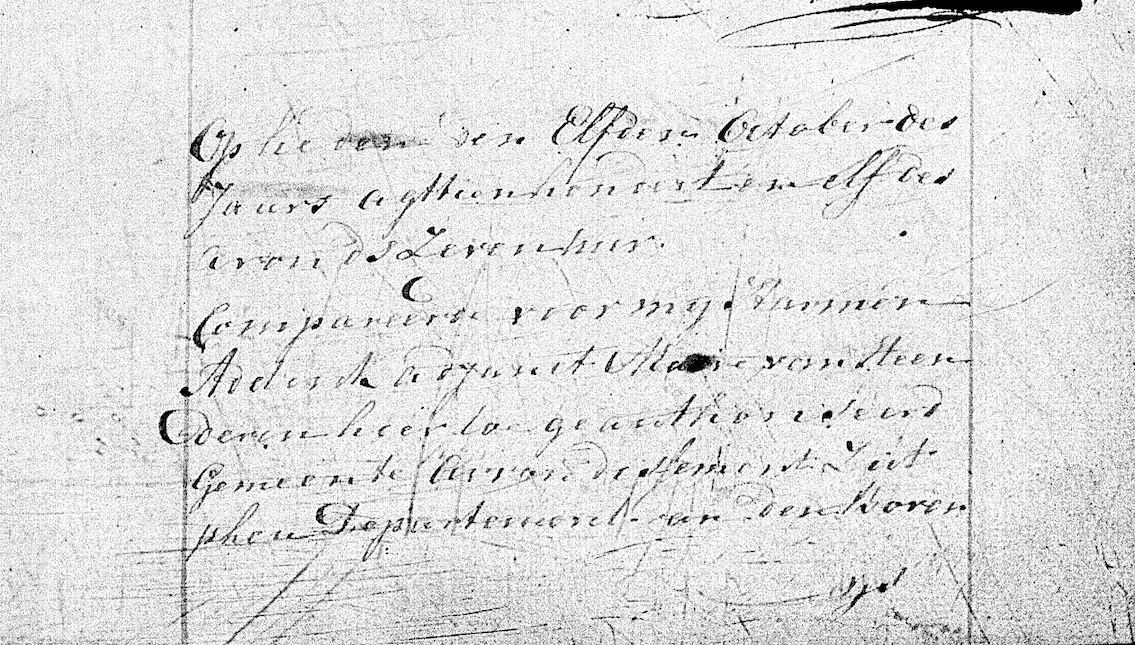 Op heden den Elfden October des
Jaars agttienhondert en elf des
avonds Zeven uur.
Compareerde voor my Harmen
Adderink adjunct Maire van Steen
deren hiertoe geauthoriseerd
Gemeente Arrondissement Zut
phen Departement van den Boven
Yssel